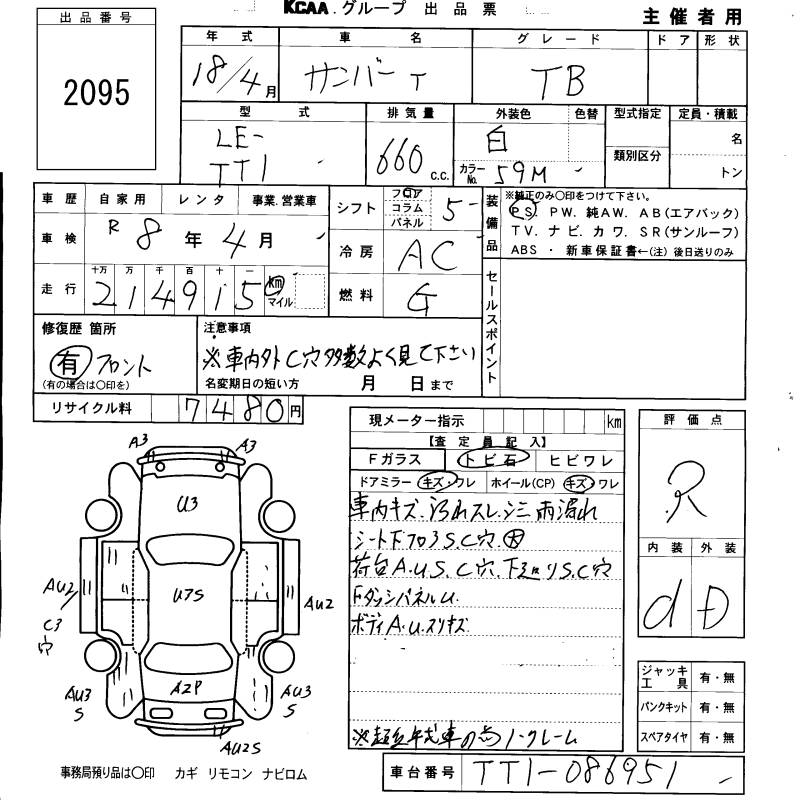 KCAA グループ 出品票
主催者用
出品番号
2095
年式 車名 グレード ドア 形状
18/4月 サンバーT TB
型式 排気量 外装色 色替 型式指定 定員・積載
LE-
TT1
660 c.c.
白
カラーNo. 59M
類別区分
名
トン
車歴 自家用 レンタ 事業.営業車
車検 R8年4月
走行 十万 万 千 百 十 一
214915 km マイル
シフト フロア コラム パネル 5
冷房 AC
燃料 G
装備品
※純正のみ○印をつけて下さい。
PS. PW. 純AW. AB(エアバック)
TV. ナビ. カワ. SR(サンルーフ)
ABS ・ 新車保証書←(注) 後日送りのみ
セールスポイント
修復歴 箇所
有 フロント
(有の場合は○印を)
注意事項
※車内外C穴多数よく見て下さい
名変期日の短い方 月 日まで
リサイクル料 7480円
現メーター指示 km
【査定員記入】
Fガラス トビ石 ヒビワレ
ドアミラー キズ・ワレ ホイール(CP) キズ・ワレ
車内キズ.汚れスレ.シミ 雨漏れ
シート下フロアS.C穴 大
荷台A.U.S.C穴.下廻りS.C穴
FダッシュパネルU.
ボディA.U.スリキズ
※超低年式車の為ノークレーム
評価点
R
内装 外装
d D
ジャッキ工具 有・無
パンクキット 有・無
スペアタイヤ 有・無
A3 A3
U3
U7S
AU2
C3
穴
AU2
AU3
S
A2P
AU3
S
AU2S
事務局預り品は○印 カギ リモコン ナビロム
車台番号 TT1-086951